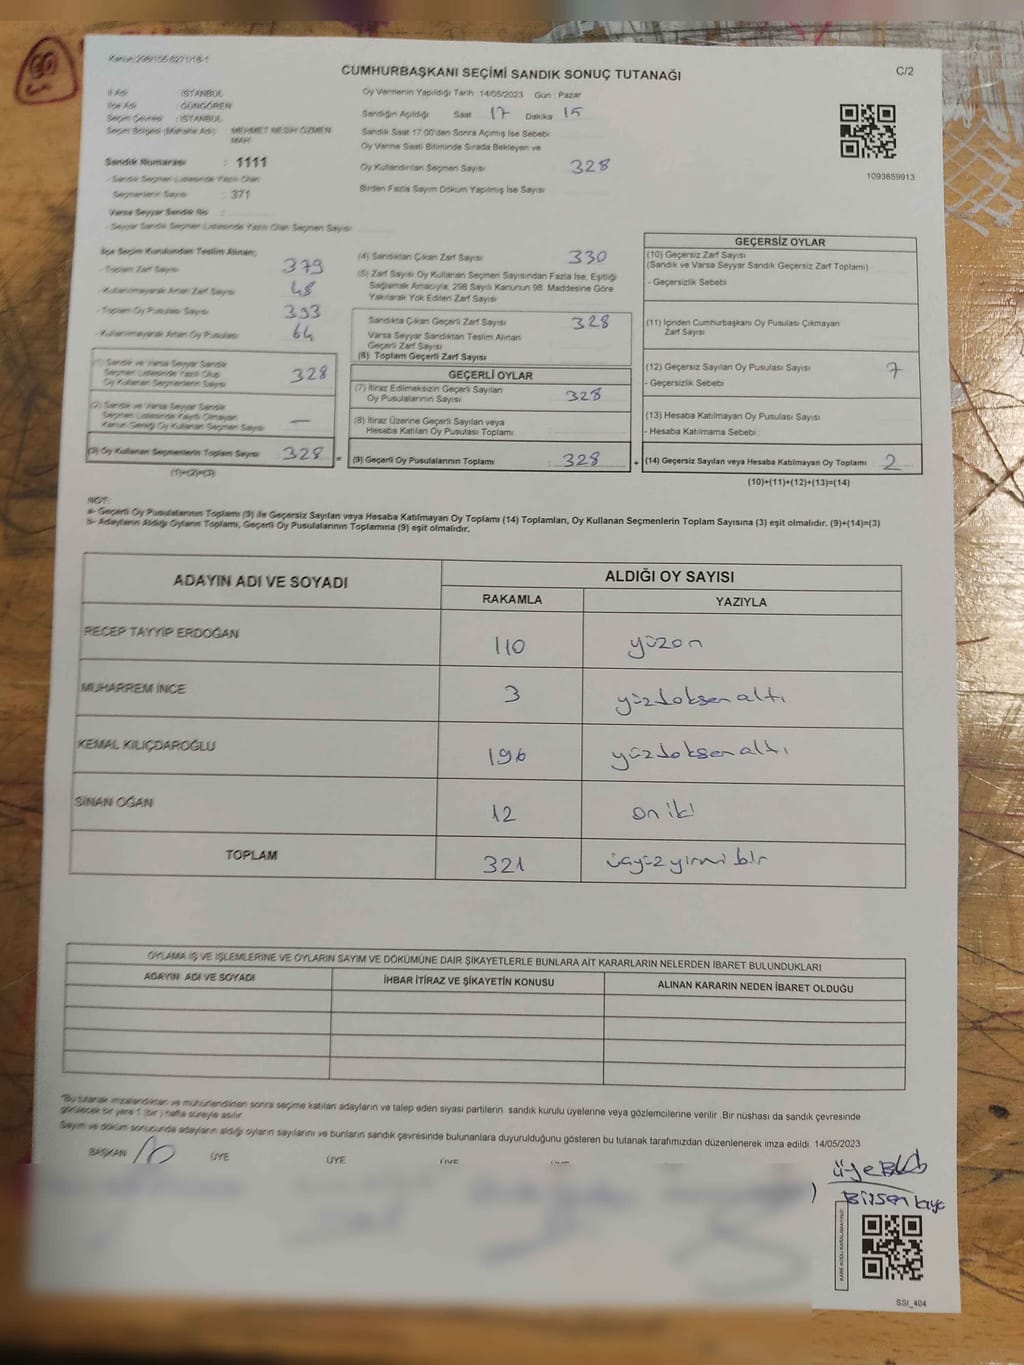 Kanun:298/105-6271/18-1
CUMHURBAŞKANI SEÇİMİ SANDIK SONUÇ TUTANAĞI
C/2
İl Adı : İSTANBUL
İlçe Adı : GÜNGÖREN
Seçim Çevresi : İSTANBUL
Seçim Bölgesi (Mahalle Adı) : MEHMET NESİH ÖZMEN
MAH.
Sandık Numarası : 1111
- Sandık Seçmen Listesinde Yazılı Olan
Seçmenlerin Sayısı : 371
Varsa Seyyar Sandık No :
- Seyyar Sandık Seçmen Listesinde Yazılı Olan Seçmen Sayısı
Oy Vermenin Yapıldığı Tarih :14/05/2023 Gün : Pazar
Sandığın Açıldığı Saat 17 Dakika 15
Sandık Saat 17:00'den Sonra Açımış İse Sebebi
Oy Verme Saati Bitiminde Sırada Bekleyen ve
Oy Kullandırılan Seçmen Sayısı 328
Birden Fazla Sayım Döküm Yapılmış İse Sayısı
1093859913
İlçe Seçim Kurulundan Teslim Alınan;
- Toplam Zarf Sayısı 379
- Kullanılmayarak Artan Zarf Sayısı 48
- Toplam Oy Pusulası Sayısı 393
- Kullanılmayarak Artan Oy Pusulası 64
(1) Sandık ve Varsa Seyyar Sandık
Seçmen Listesinde Yazılı Olup
Oy Kullanan Seçmenlerin Sayısı 328
(2) Sandık ve Varsa Seyyar Sandık
Seçmen Listesinde Kayıtlı Olmayan
Kanun Gereği Oy Kullanan Seçmen Sayısı —
(3) Oy Kullanan Seçmenlerin Toplam Sayısı 328
(1)+(2)=(3)
(4) Sandıktan Çıkan Zarf Sayısı 330
(5) Zarf Sayısı Oy Kullanan Seçmen Sayısından Fazla İse, Eşitliği
Sağlamak Amacıyla; 298 Sayılı Kanunun 98. Maddesine Göre
Yakılarak Yok Edilen Zarf Sayısı
Sandıkta Çıkan Geçerli Zarf Sayısı 328
Varsa Seyyar Sandıktan Teslim Alınan
Geçerli Zarf Sayısı
(6) Toplam Geçerli Zarf Sayısı
GEÇERLİ OYLAR
(7) İtiraz Edilmeksizin Geçerli Sayılan
Oy Pusulalarının Sayısı 328
(8) İtiraz Üzerine Geçerli Sayılan veya
Hesaba Katılan Oy Pusulası Toplamı
= (9) Geçerli Oy Pusulalarının Toplamı : 328 +
GEÇERSİZ OYLAR
(10) Geçersiz Zarf Sayısı
(Sandık ve Varsa Seyyar Sandık Geçersiz Zarf Toplamı)
- Geçersizlik Sebebi
(11) İçinden Cumhurbaşkanı Oy Pusulası Çıkmayan
Zarf Sayısı
(12) Geçersiz Sayılan Oy Pusulası Sayısı 7
- Geçersizlik Sebebi
(13) Hesaba Katılmayan Oy Pusulası Sayısı
- Hesaba Katılmama Sebebi :
(14) Geçersiz Sayılan veya Hesaba Katılmayan Oy Toplamı 2
(10)+(11)+(12)+(13)=(14)
NOT:
a- Geçerli Oy Pusulalarının Toplamı (9) ile Geçersiz Sayılan veya Hesaba Katılmayan Oy Toplamı (14) Toplamları, Oy Kullanan Seçmenlerin Toplam Sayısına (3) eşit olmalıdır. (9)+(14)=(3)
b- Adayların Aldığı Oyların Toplamı, Geçerli Oy Pusulalarının Toplamına (9) eşit olmalıdır.
ADAYIN ADI VE SOYADI
ALDIĞI OY SAYISI
RAKAMLA YAZIYLA
RECEP TAYYİP ERDOĞAN 110 yüzon
MUHARREM İNCE 3 yüzdoksenaltı
KEMAL KILIÇDAROĞLU 196 yüzdoksenaltı
SİNAN OĞAN 12 oniki
TOPLAM 321 üçyüzyirmibir
OYLAMA İŞ VE İŞLEMLERİNE VE OYLARIN SAYIM VE DÖKÜMÜNE DAİR ŞİKAYETLERLE BUNLARA AİT KARARLARIN NELERDEN İBARET BULUNDUKLARI
ADAYIN ADI VE SOYADI İHBAR İTİRAZ VE ŞİKAYETİN KONUSU ALINAN KARARIN NEDEN İBARET OLDUĞU
*Bu tutanak imzalandıktan ve mühürlendikten sonra seçime katılan adayların ve talep eden siyasi partilerin sandık kurulu üyelerine veya gözlemcilerine verilir. Bir nüshası da sandık çevresinde
görülecek bir yere 1 (bir ) hafta süreyle asılır.
Sayım ve döküm sonucunda adayların aldığı oyların sayılarını ve bunların sandık çevresinde bulunanlara duyurulduğunu gösteren bu tutanak tarafımızdan düzenlenerek imza edildi. 14/05/2023
BAŞKAN ÜYE ÜYE ÜYE ÜYE
SSI_404